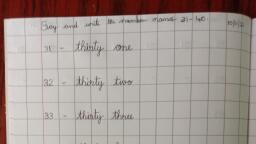 Say and write the number names 31 - 40
31 - thirty one
32 - thirty two
33 - thirty three